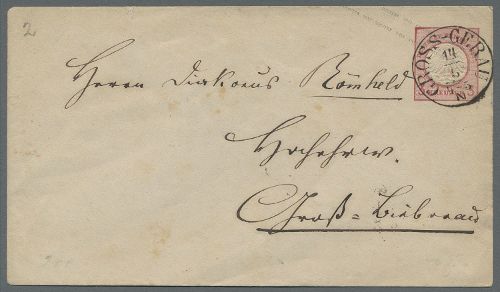 2
GROSS-GERAU
14
6
N3
Herrn Diakonus Römheld
Hochehrw.
Groß-Bieberau